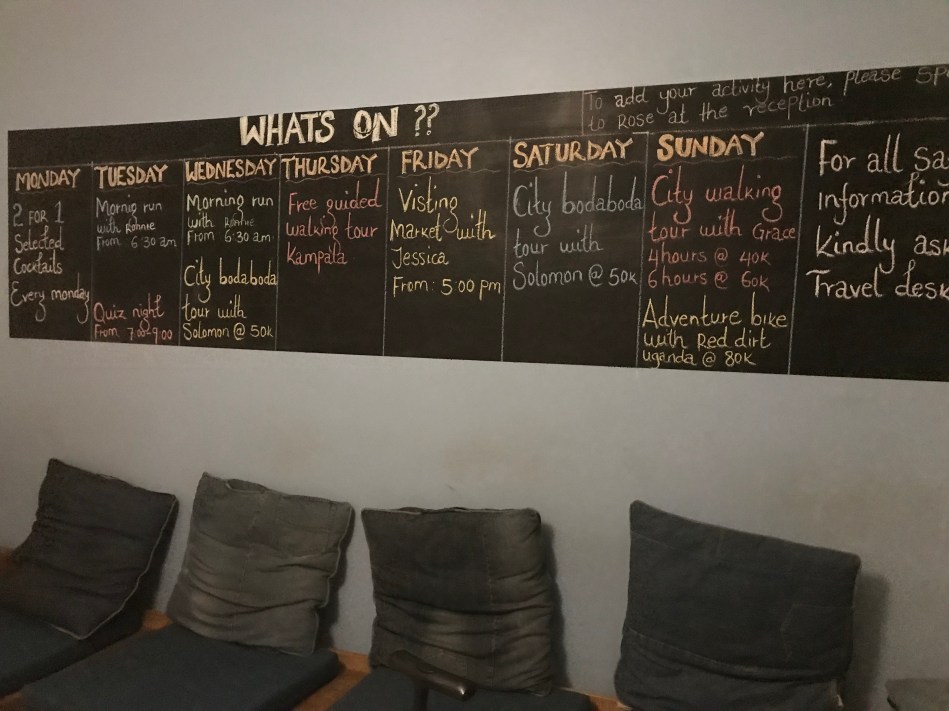 WHATS ON ??
To add your activity here, please
to Rose at the reception
MONDAY
2 FOR 1
Selected
Cocktails
Every monday
TUESDAY
Mornig run
with Ronnie
From 6:30 am
Quiz night
From 7:00-9:00
WEDNESDAY
Morning run
with Ronnie
From 6:30 am
City bodaboda
tour with
Solomon @ 50K
THURSDAY
Free guided
walking tour
Kampala
FRIDAY
Visting
Market with
Jessica
From: 5:00 pm
SATURDAY
City bodaboda
tour with
Solomon @ 50K
SUNDAY
City walking
tour with Grace
4hours @ 40K
6hours @ 60K
Adventure bike
with Red dirt
uganda @ 80K
For all
information
Kindly ask
Travel desk